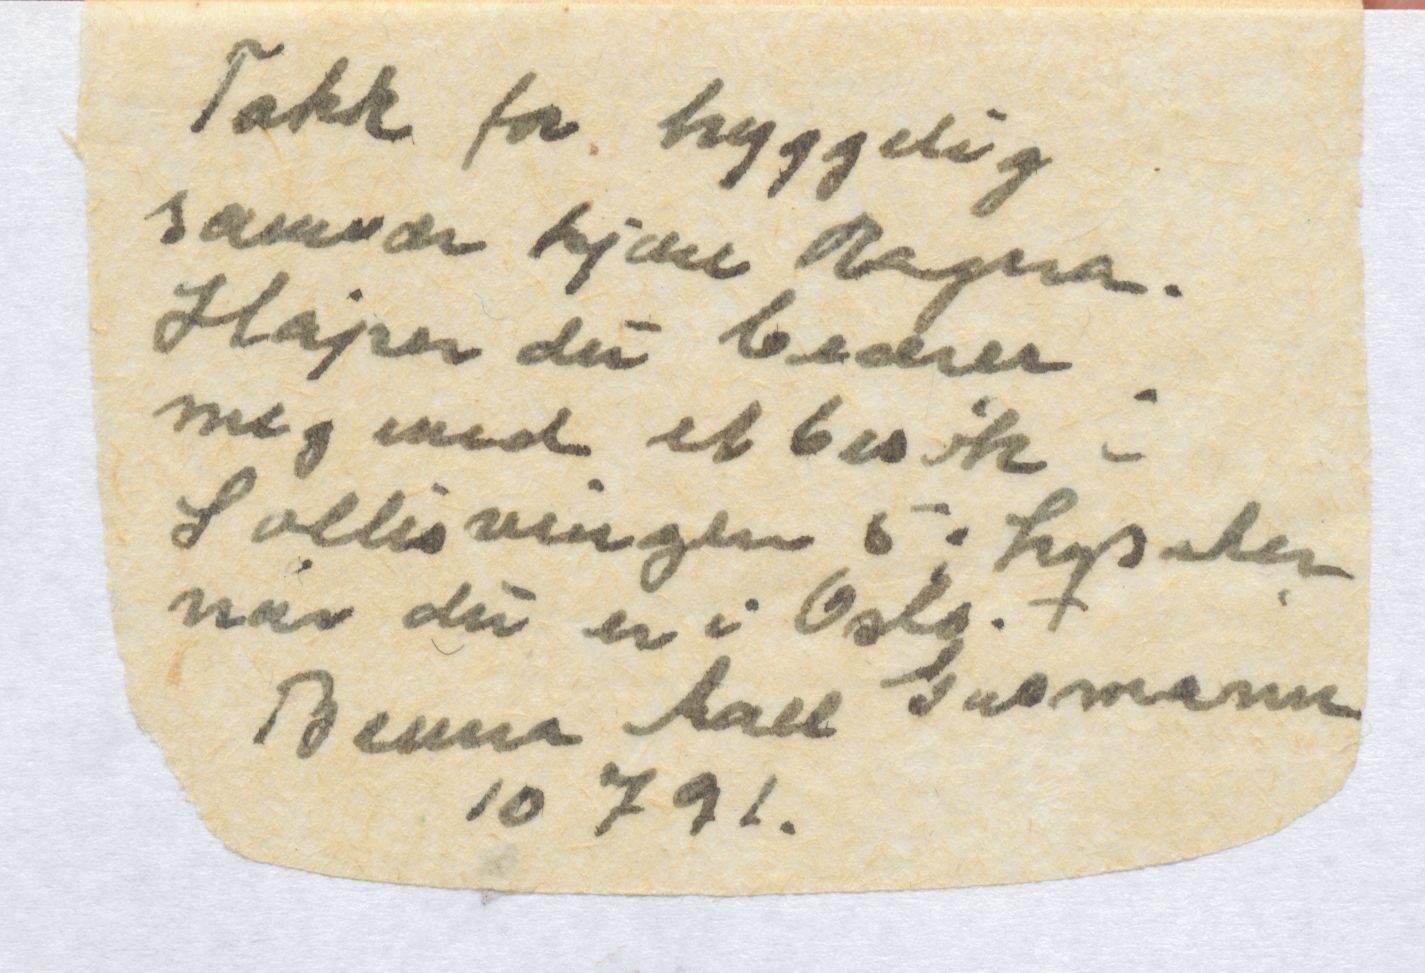 Takk for hyggelig
samvær kjære Ragna.
Håper du beærer
meg med et besøk i
Sollisvingen 5 i Lysaker
når du er i Oslo.
Benna Aall
10 7 91.